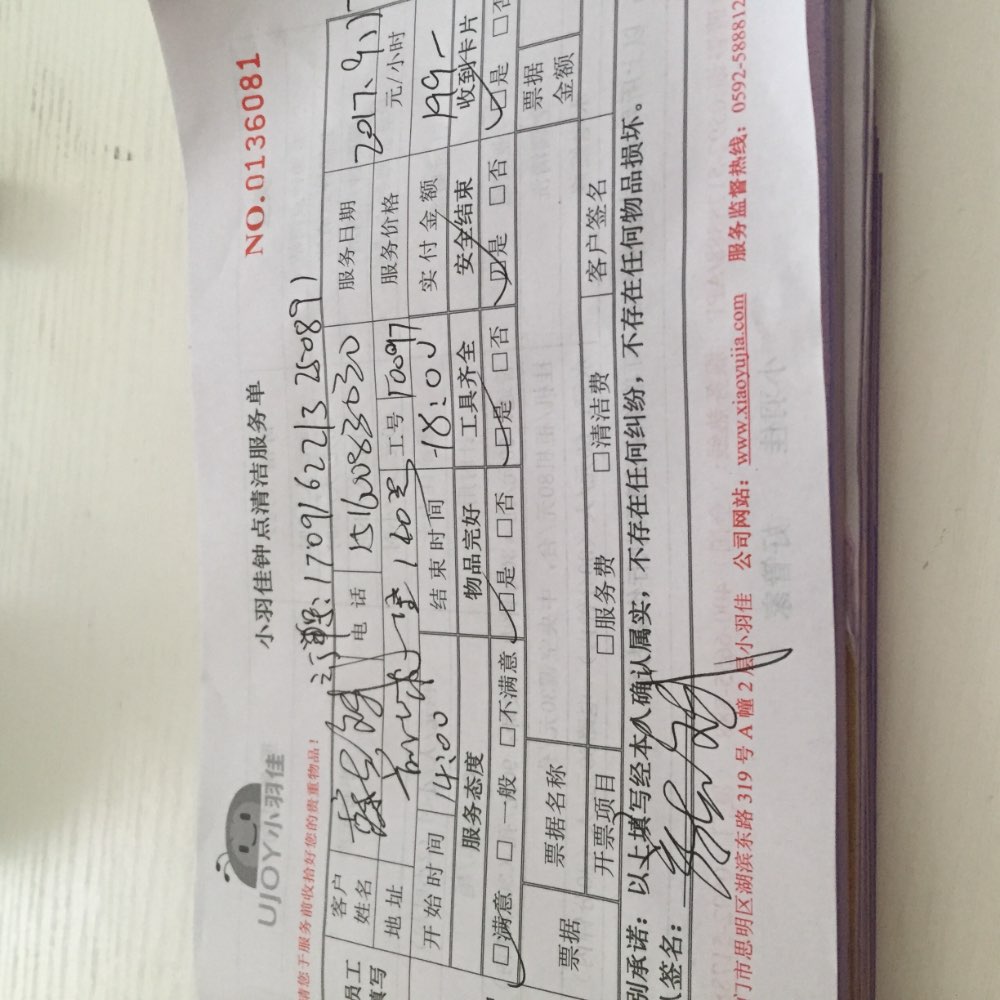 UJOY小羽佳
小羽佳钟点清洁服务单
NO.0136081
请您于服务前收拾好您的贵重物品!
1709162213 250891
员工填写
客户姓名
电话 15160083030
服务日期 2017.9.17
地址
工号 10097
服务价格 元/小时
开始时间 14:00
结束时间 18:00
实付金额 199-
服务态度 物品完好 工具齐全 安全结束 收到卡片
□满意 □一般 □不满意 □是 □否 □是 □否 □是 □否 □是 □否
票据 票据名称 票据金额
开票项目 □服务费 □清洁费 客户签名
别承诺:以上填写经本人确认属实,不存在任何纠纷,不存在任何物品损坏。
人签名:
门市思明区湖滨东路 319 号 A 幢 2 层小羽佳 公司网站:www.xiaoyujia.com 服务监督热线:0592-5888812